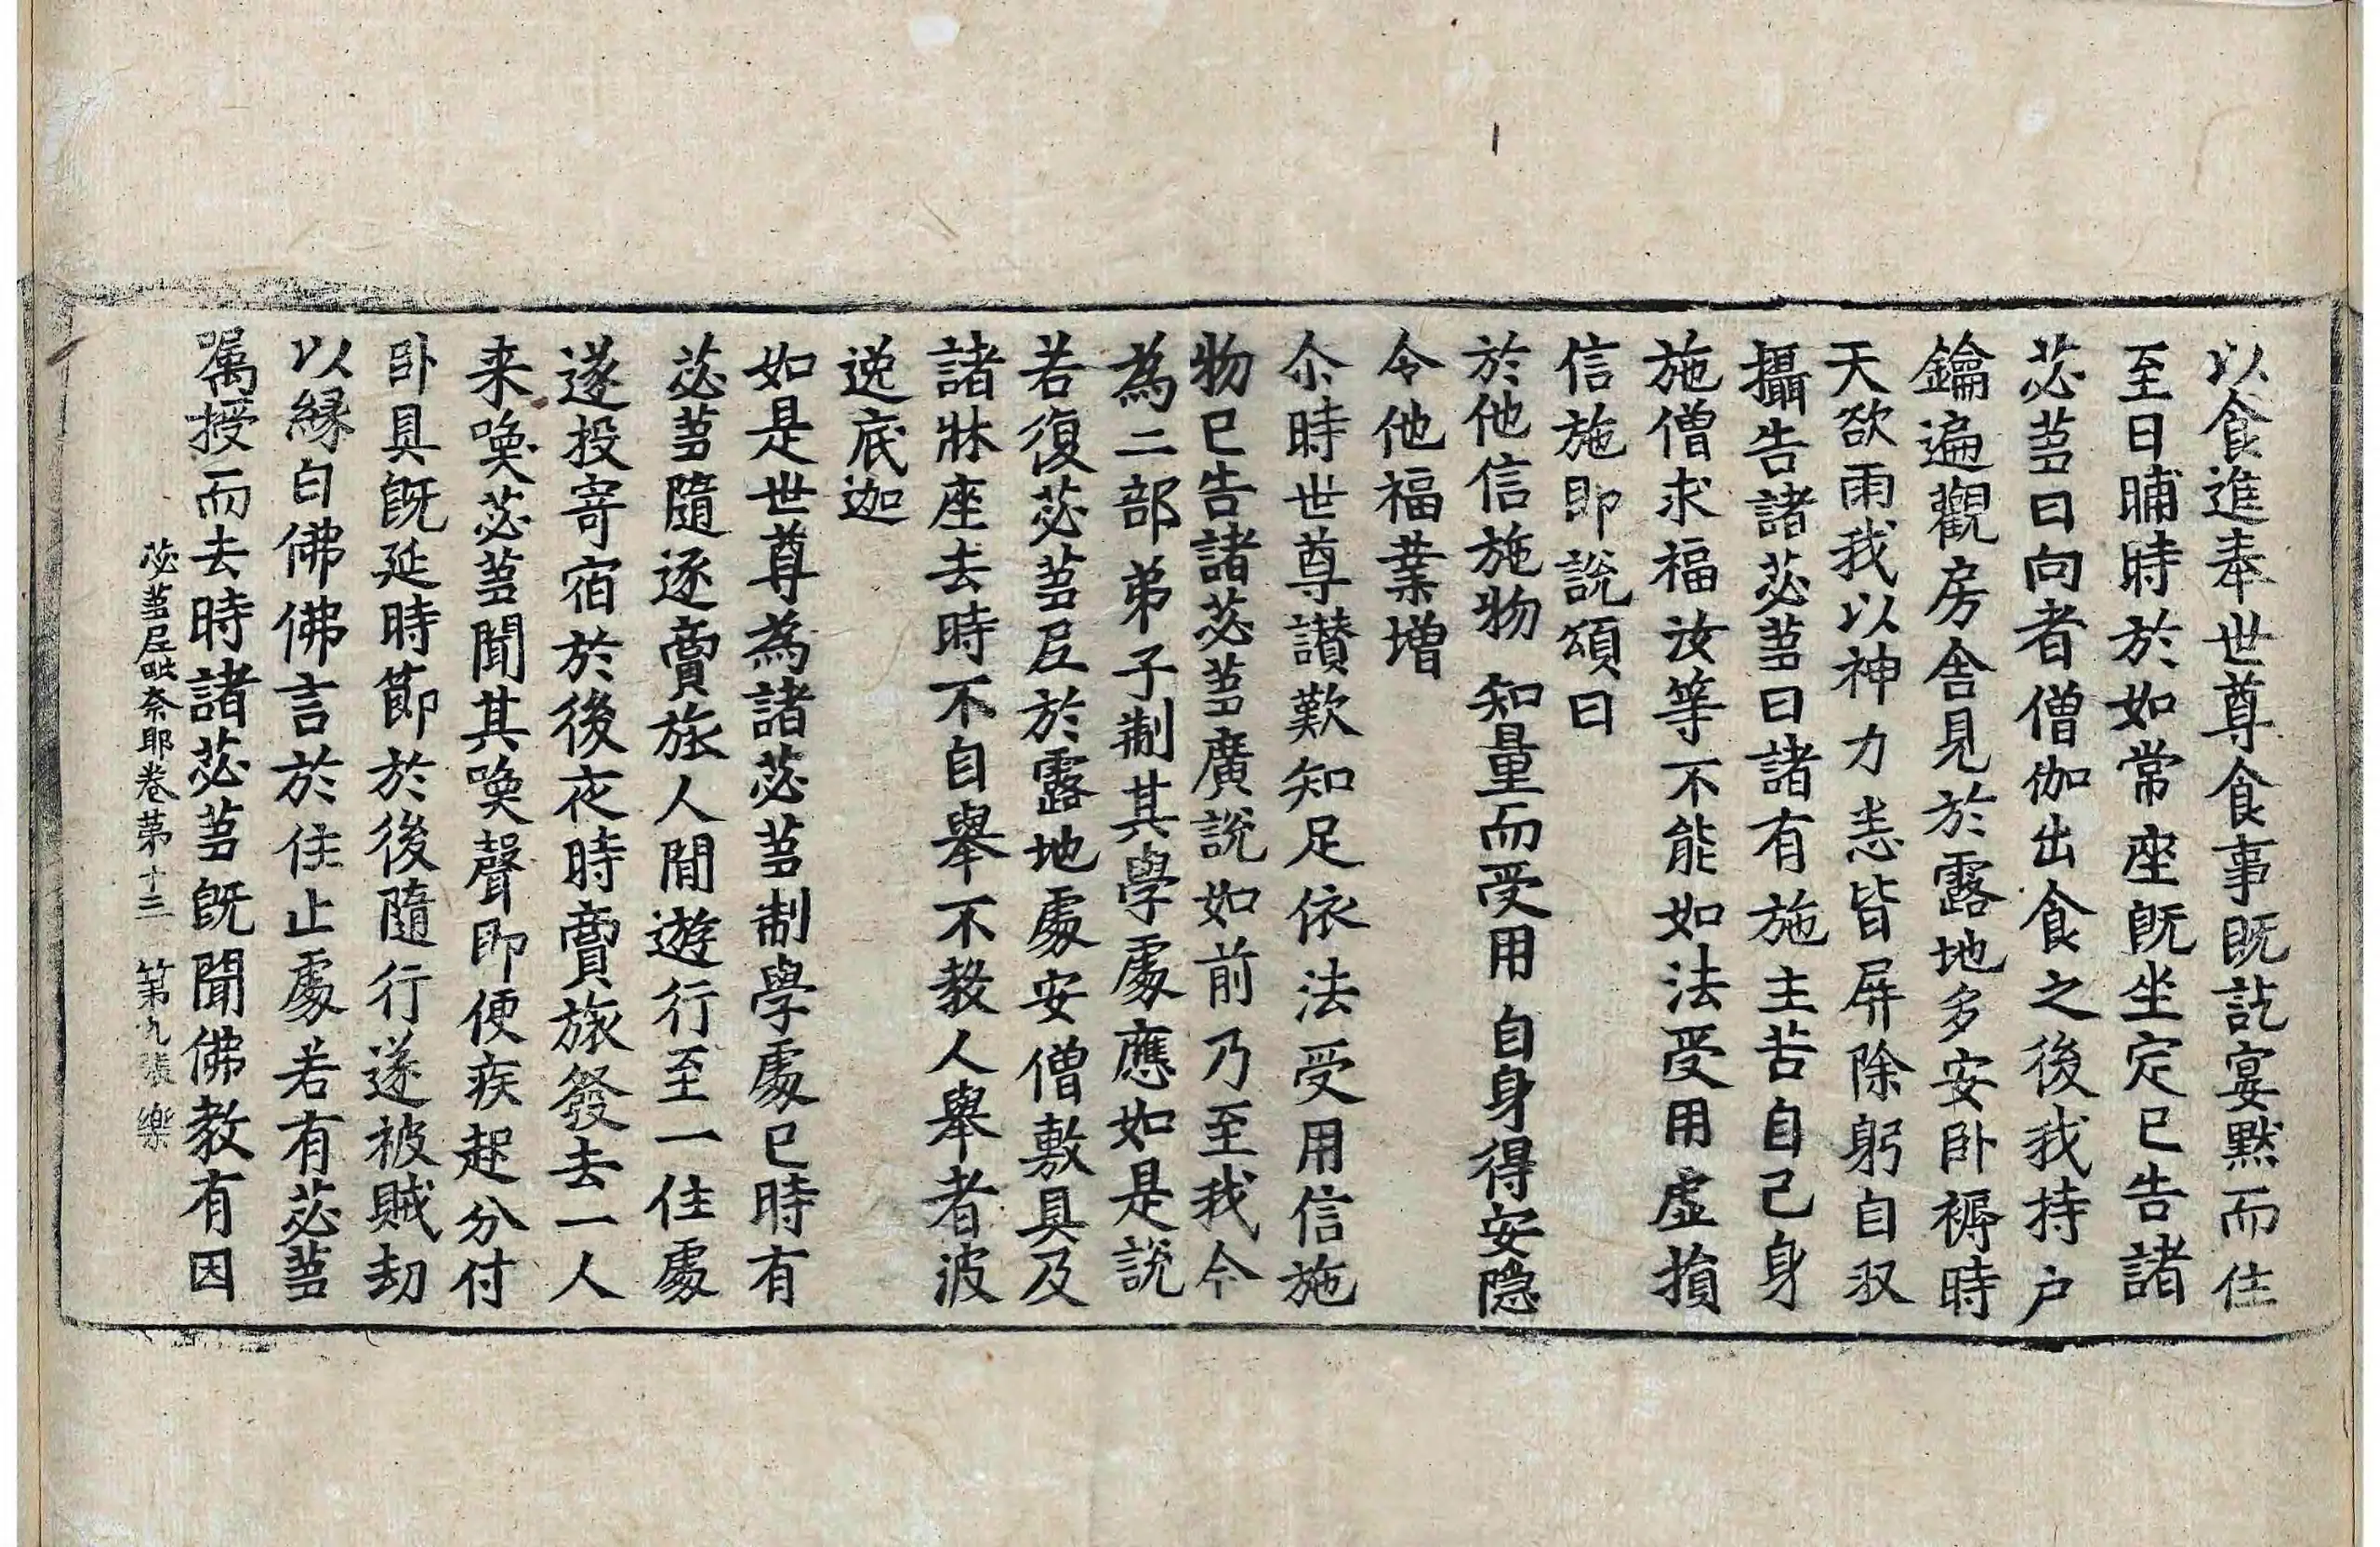 以食進奉世尊食事既訖宴默而住
至日晡時於如常座既坐定已告諸
苾蒭曰向者僧伽出食之後我持户
鑰遍觀房舍見於露地多安卧褥時
天欲雨我以神力悉皆屏除躬自収
攝告諸苾蒭曰諸有施主苦自己身
施僧求福汝等不能如法受用虚損
信施即說頌曰
於他信施物 知量而受用 自身得安隠
令他福業增
尒時世尊讃歎知足依法受用信施
物已告諸苾蒭廣說如前乃至我今
為二部弟子制其學處應如是說
若復苾蒭尼於露地處安僧敷具及
諸牀座去時不自舉不教人舉者波
逸底迦
如是世尊為諸苾蒭制學處已時有
苾蒭隨逐賣旅人間遊行至一住處
遂投寄宿於後夜時賣旅發去一人
来喚苾蒭聞其喚聲即便疾起分付
卧具既延時節於後隨行遂被賊劫
以緣白佛佛言於住止處若有苾蒭
嘱授而去時諸苾蒭既聞佛教有因
苾蒭尼毗奈耶卷第十三 第九張 樂